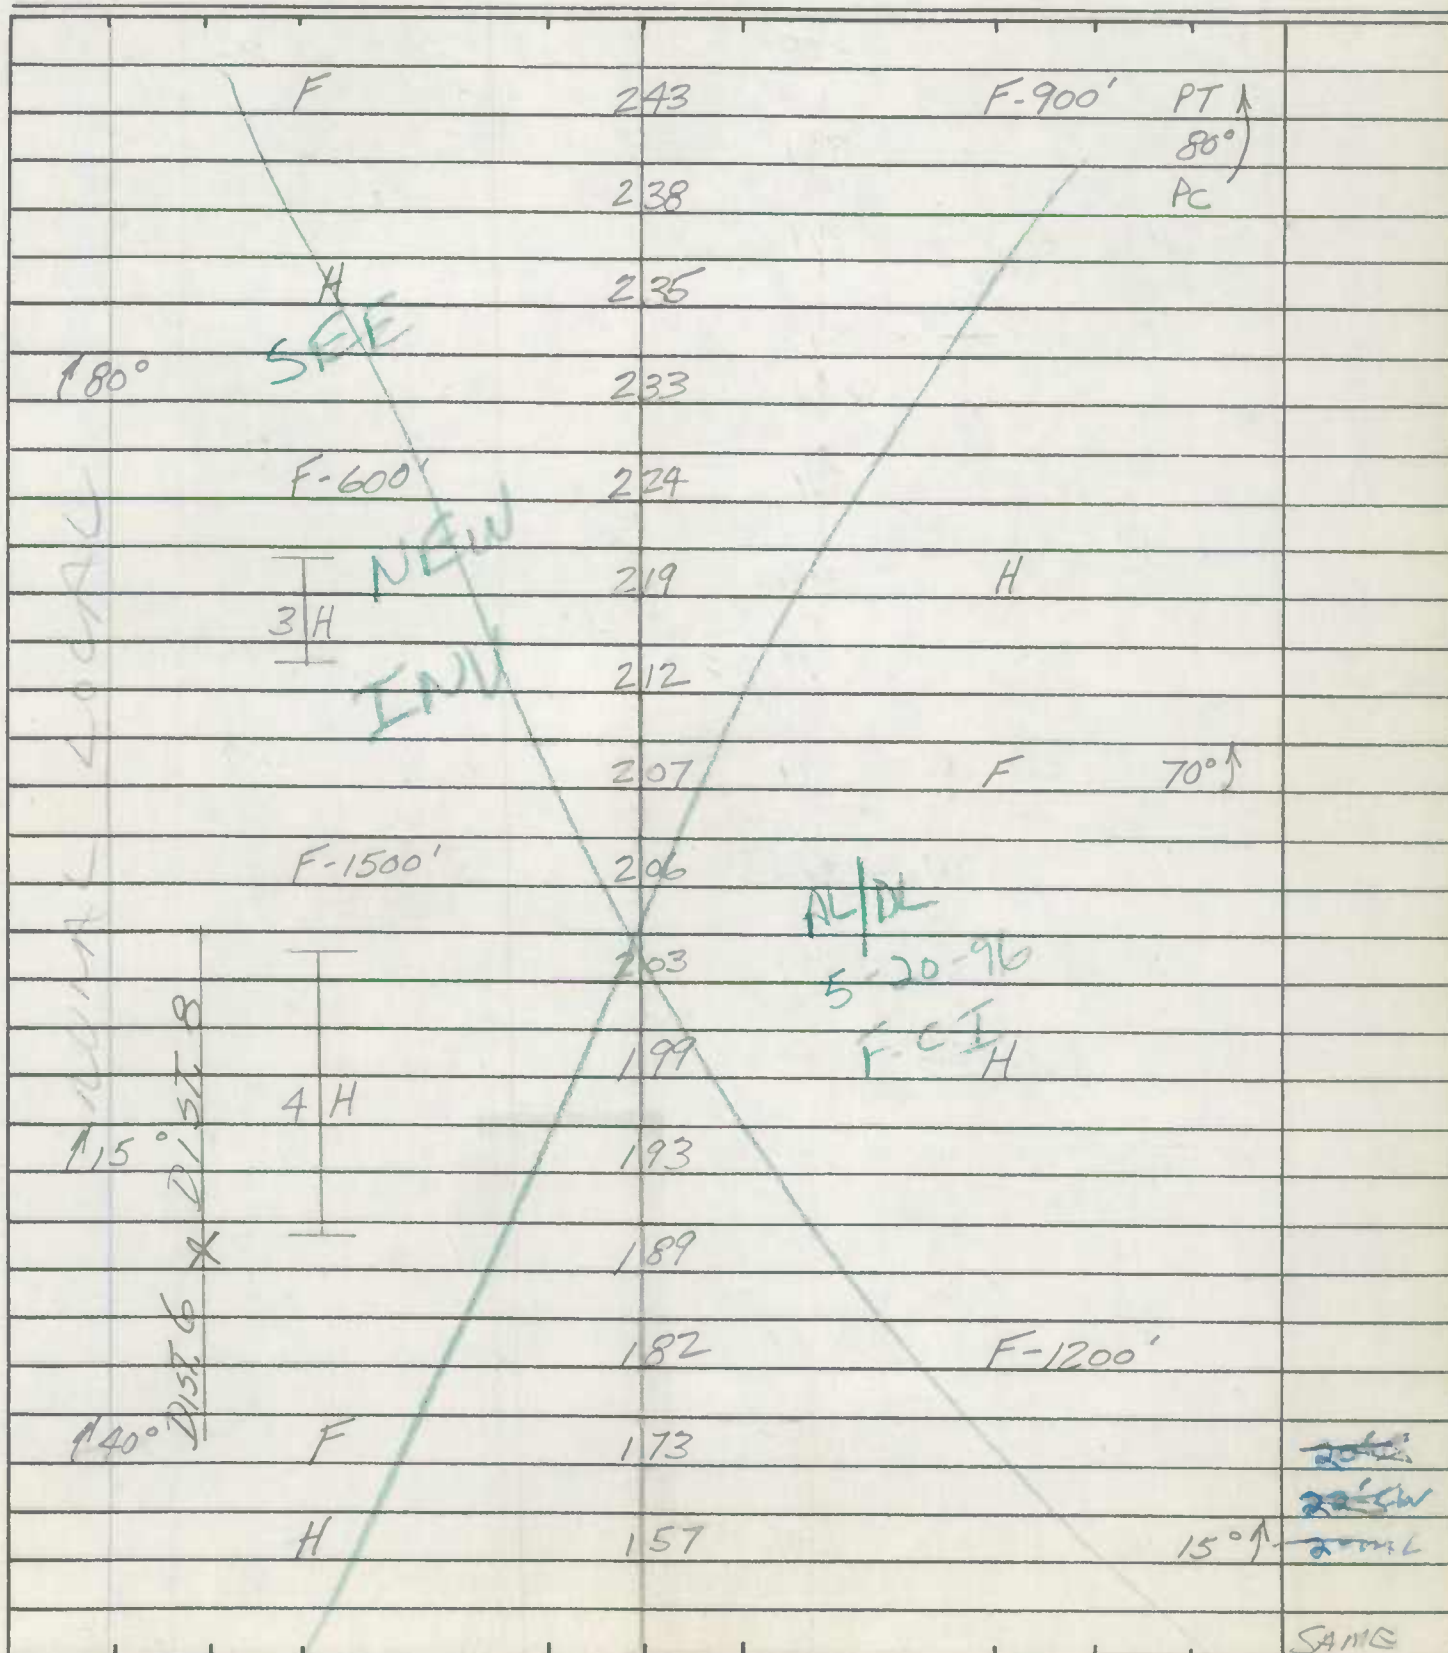 F 243 F-900' PT
80°
238 PC
H 235
SEE
↑80° 233
F-600' 224
NEW
219 H
3 H
INV
212
207 F 70°↑
F-1500' 206
AL/DL
203
5-20-96
F.C.I
199 H
4 H
↑15° 193
DIST. 8
189
DIST. 6
182 F-1200'
↑40° F 173
22' SW
H 157 15°↑
SAME